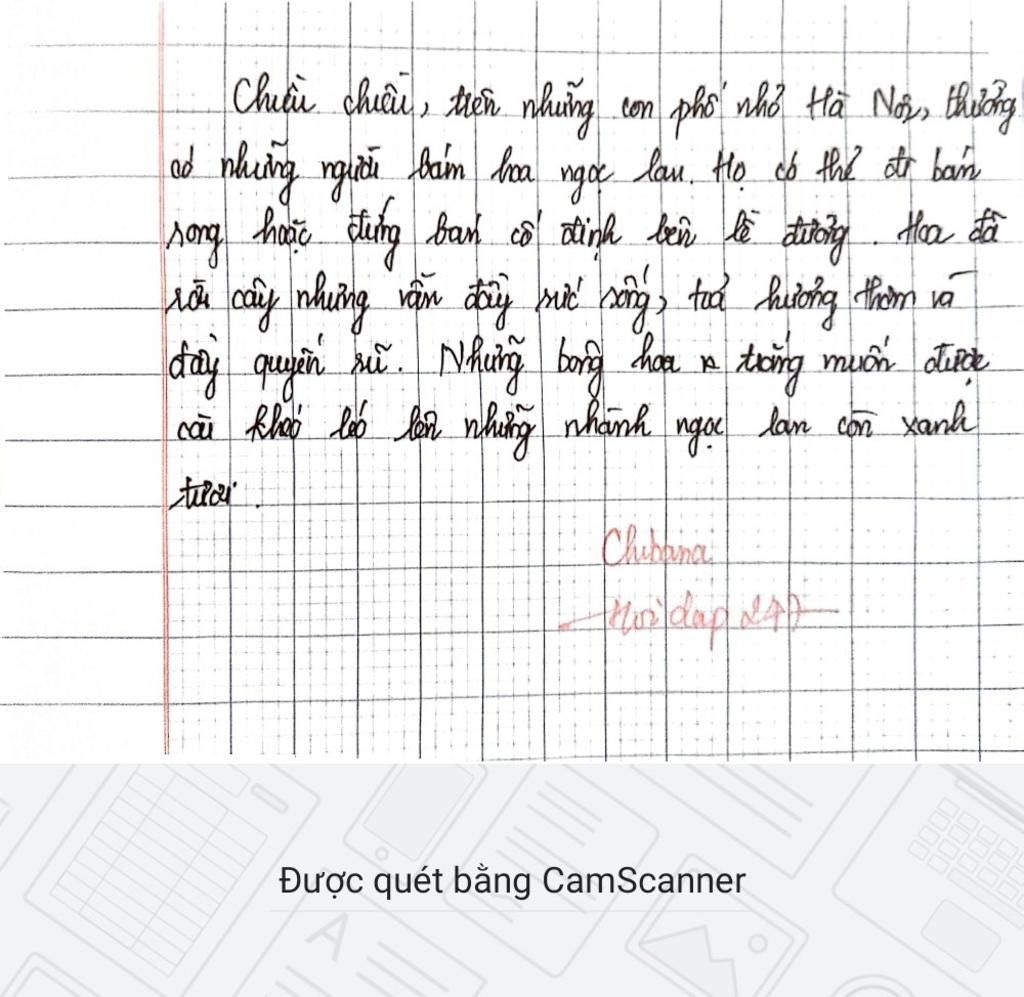 Chiều chiều, trên những con phố nhỏ Hà Nội, thường
có những người bán hoa ngọc lan. Họ có thể đi bán
rong hoặc đứng bán cố định bên lề đường. Hoa đã
rời cây nhưng vẫn đầy sức sống, toả hương thơm và
đầy quyến rũ. Những bông hoa trắng muốn được
cài khéo léo lên những nhành ngọc lan còn xanh
tươi.
Chibana
Hoi dap 247
Được quét bằng CamScanner